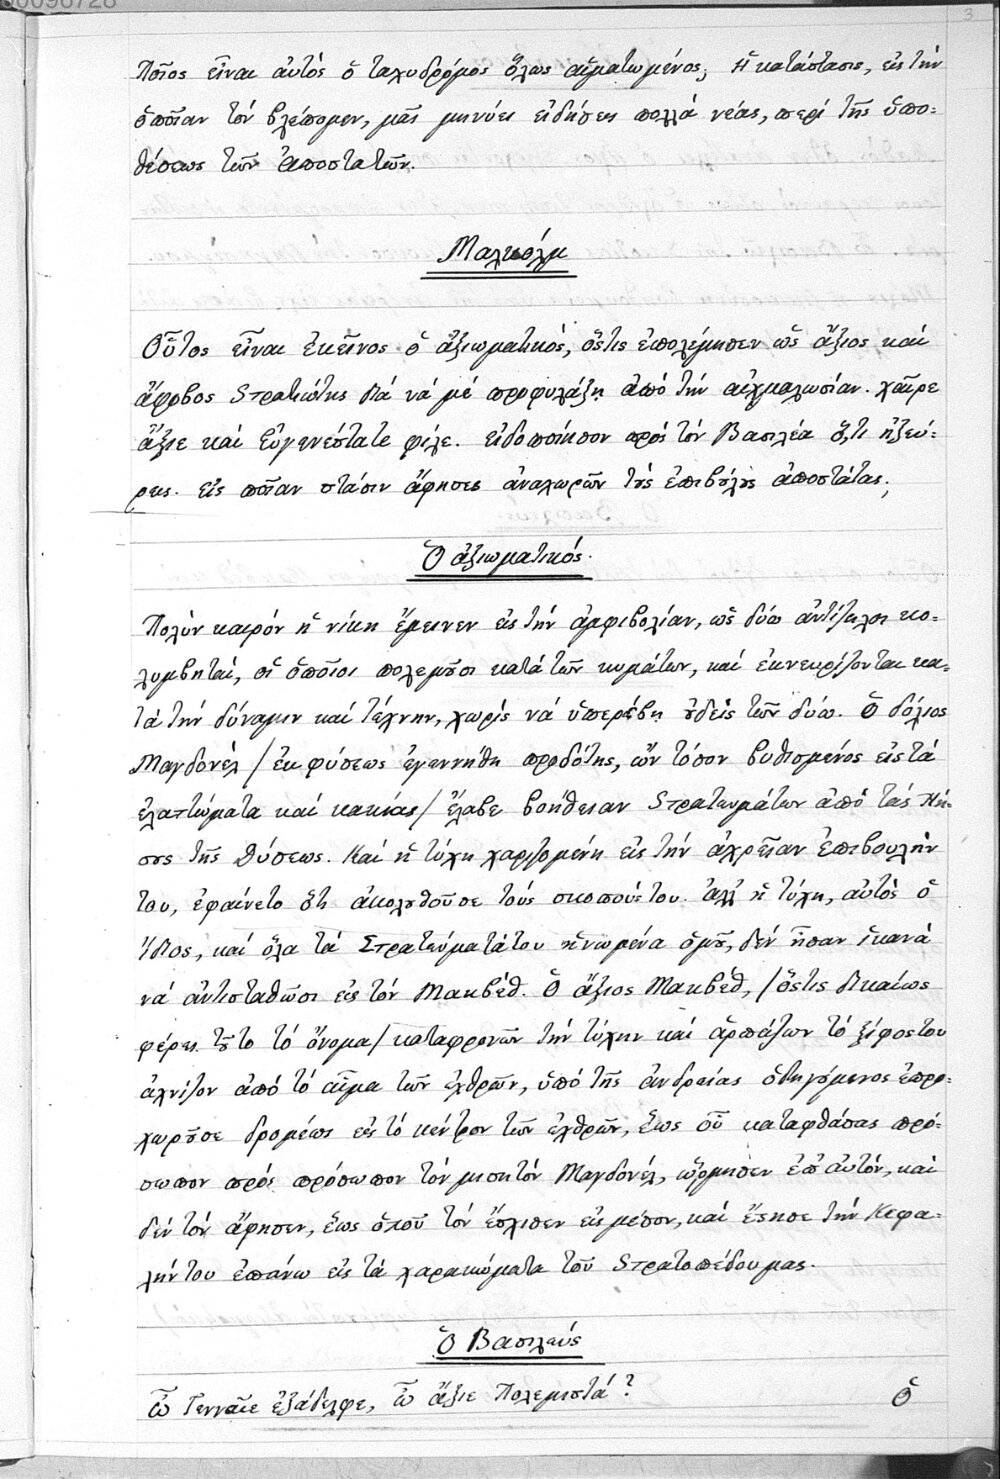 00096728
3
Ποῖος εἶναι αὐτός ὁ ταχυδρόμος ὅλως αἱματωμένος; Ἡ κατάστασις, εἰς τήν
ὁποῖαν τόν βλέπομεν, μᾶς μηνύει εἰδήσεις πολλά νέας, περί τῆς ὑπο-
θέσεως τῶν Ἀποστατῶν.
Μαλκολμ
Οὗτος εἶναι ἐκεῖνος ὁ ἀξιωματικός, ὅστις ἐπολέμησεν ὡς ἄξιος καί
ἄφοβος Στρατιώτης διά νά μέ προφυλάξῃ ἀπό τήν αἰχμαλωσίαν. χαῖρε
ἄξιε καί Εὐγενέστατε φίλε. εἰδοποίησον πρός τόν Βασιλέα ὅ,τι ἠξεύ-
ρεις. εἰς ποῖαν στάσιν ἄφησες ἀναχωρῶν τούς ἐπιβούλους ἀποστάτας;
Ὁ ἀξιωματικός.
Πολύν καιρόν ἡ νίκη ἔμεινεν εἰς τήν ἀμφιβολίαν, ὡς δύω ἀντίζηλοι κο-
λυμβηταί, οἱ ὁποῖοι πολεμοῦσι κατά τῶν κυμάτων, καί ἐκνευρίζονται κα-
τά τήν δύναμιν καί τέχνην, χωρίς νά ὑπερέβῃ οὐδείς τῶν δύω. Ὁ δόλιος
Μαγδονέλ / ἐκ φύσεως ἐγεννήθη προδότης, ὤν τόσον βυθισμένος εἰς τά
ἐλαττώματα καί κακίας / ἔλαβε βοήθειαν Στρατευμάτων ἀπό τάς Νή-
σους τῆς Δύσεως. Καί ἡ τύχη χαριζομένη εἰς τήν ἀχρεῖαν ἐπιβουλήν
του, ἐφαίνετο ὅτι ἀκολουθοῦσε τούς σκοπούς του. ἀλλ' ἡ τύχη, αὐτός ὁ
ἴδιος, καί ὅλα τά Στρατεύματά του ἡνωμένα ὁμοῦ, δέν ἦσαν ἱκανά
νά ἀντισταθῶσι εἰς τόν Μακβέθ. Ὁ ἄξιος Μακβέθ, / ὅστις δικαίως
φέρει τοῦτο τό ὄνομα / καταφρονῶν τήν τύχην καί ἁρπάζων τό ξίφος του
ἀχνίζον ἀπό τό αἷμα τῶν ἐχθρῶν, ὑπό τῆς ἀνδρείας ὁδηγούμενος ἐπρο-
χωροῦσε δρομέως εἰς τό κέντρον τῶν ἐχθρῶν, ἕως οὗ καταφθάσας πρό-
σωπον πρός πρόσωπον τόν μισητόν Μαγδονέλ, ὥρμησεν ἐπ' αὐτόν, καί
δέν τόν ἄφησεν, ἕως ὁποῦ τόν ἔσχισεν εἰς μέσον, καί ἔστησε τήν Κεφα-
λήν του ἐπάνω εἰς τά χαρακώματα τοῦ Στρατοπέδου μας.
Ὁ Βασιλεύς
ὦ Γενναῖε ἐξάδελφε, ὦ ἄξιε Πολεμιστά?
Ὁ